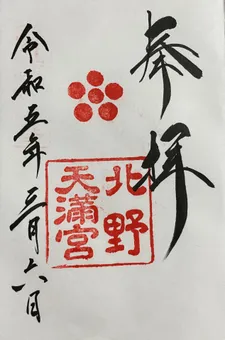 奉拝
北野
天満宮
令和五年三月六日